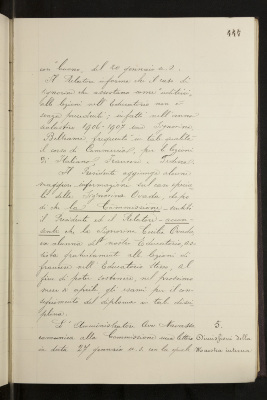 445
con lettera del 20 gennaio a. c.
Il Relatore informa che il caso di
signorine che assistano come uditrici
alle lezioni nell' Educatorio non è
senza precedenti; infatti nell' anno
scolastico 1906-1907 una Signorina
frequentò in tale qualità
il corso di Commercio, per le lezioni
di Italiano, Francese e Tedesco.
Il Presidente aggiunge alcune
maggiori informazioni sul caso specia
le della Signorina Oreda, dopo
di che la Commissione, udito
il Presidente ed il Relatore, accon
sente che la Signorina Oreda
ex alunna dell' nostro Educatorio, as
sista gratuitamente alle lezioni di
francese nell' Educatorio stesso, al
fine di poter sostenere, nel prossimo
mese di aprile, gli esami per il con
seguimento del diploma in tale disci
plina.
L' Amministratore Avv. 5.
comunica alla Commissione una lettera Dimissioni della
in data 27 gennaio a. c. con la quale Maestra interna